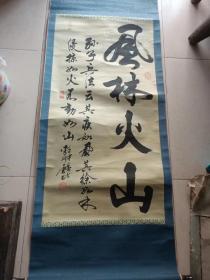 風林火山
孫子兵法云其疾如風其徐如林
侵掠如火不動如山